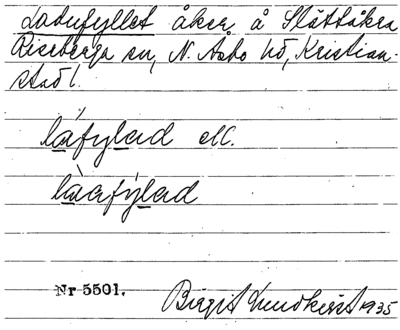 Ladufyllet åker å Slättåkra
Riseberga sn, N. Åsbo hd, Kristian-
stads l.
låfylad ell.
låafylad
Nr 5501.
Birgit Lundkvist 1935